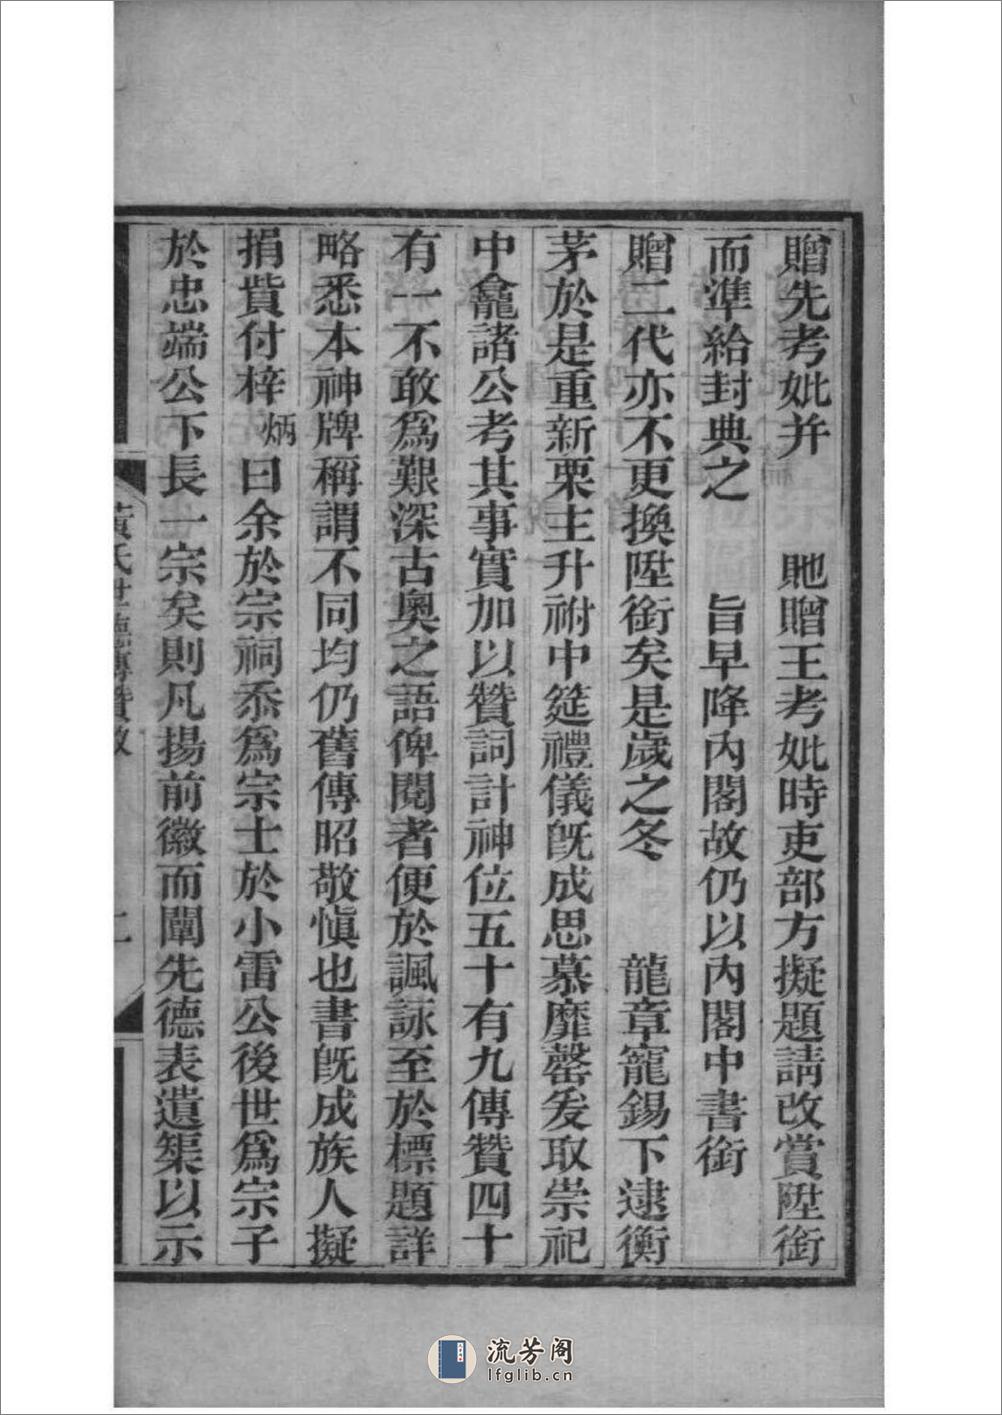 贈先考妣并　　貤贈王考妣時吏部方擬題請改賞陞銜
而準給封典之　　旨早降內閣故仍以內閣中書銜
贈二代亦不更換陞銜矣是歲之冬　　龍章寵錫下逮衡
茅於是重新栗主升祔中筵禮儀既成思慕靡罄爰取崇祀
中龕諸公考其事實加以贊詞計神位五十有九傳贊四十
有一不敢爲艱深古奧之語俾閱者便於諷詠至於標題詳
略悉本神牌稱謂不同均仍舊傳昭敬愼也書既成族人擬
捐貲付梓炳曰余於宗祠忝爲宗士於小雷公後世爲宗子
於忠端公下長一宗矣則凡揚前徽而闡先德表遺榘以示
黃氏世德傳贊敘
二
流芳阁
lfglib.cn